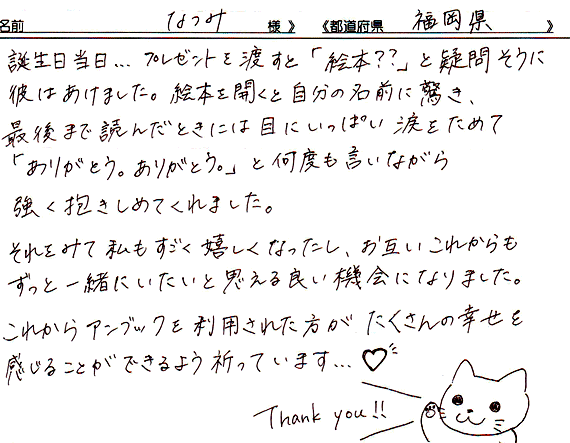 名前 なつみ 様 》 《都道府県 福岡県 》
誕生日当日… プレゼントを渡すと「絵本??」と疑問そうに
彼はあけました。絵本を開くと自分の名前に驚き、
最後まで読んだときには目にいっぱい涙をためて
「ありがとう。ありがとう。」と何度も言いながら
強く抱きしめてくれました。
それをみて私もすごく嬉しくなったし、お互いこれからも
ずっと一緒にいたいと思える良い機会になりました。
これからアンブックを利用された方がたくさんの幸せを
感じることができるよう祈っています…♡
Thank you!!